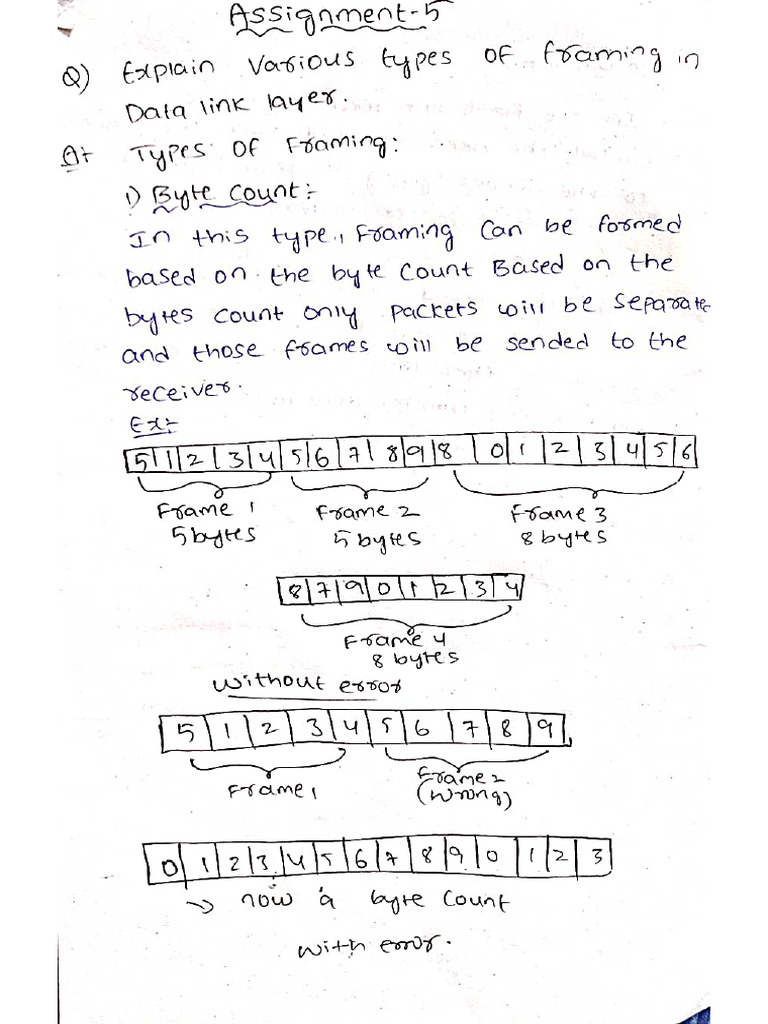 Assignment-5
Q) Explain various types of framing in
Data link layer.
A:- Types of Framing:
1) Byte Count:-
In this type, Framing can be formed
based on the byte count Based on the
bytes count only packets will be separate
and those frames will be sended to the
receiver.
Ex:-
5 1 2 3 4 5 6 7 8 9 8 0 1 2 3 4 5 6
Frame 1 Frame 2 Frame 3
5 bytes 5 bytes 8 bytes
8 7 9 0 1 2 3 4
Frame 4
8 bytes
without error
5 1 2 3 4 5 6 7 8 9
Frame 1 Frame 2
(wrong)
0 1 2 3 4 5 6 7 8 9 0 1 2 3
→ now a byte count
with error.